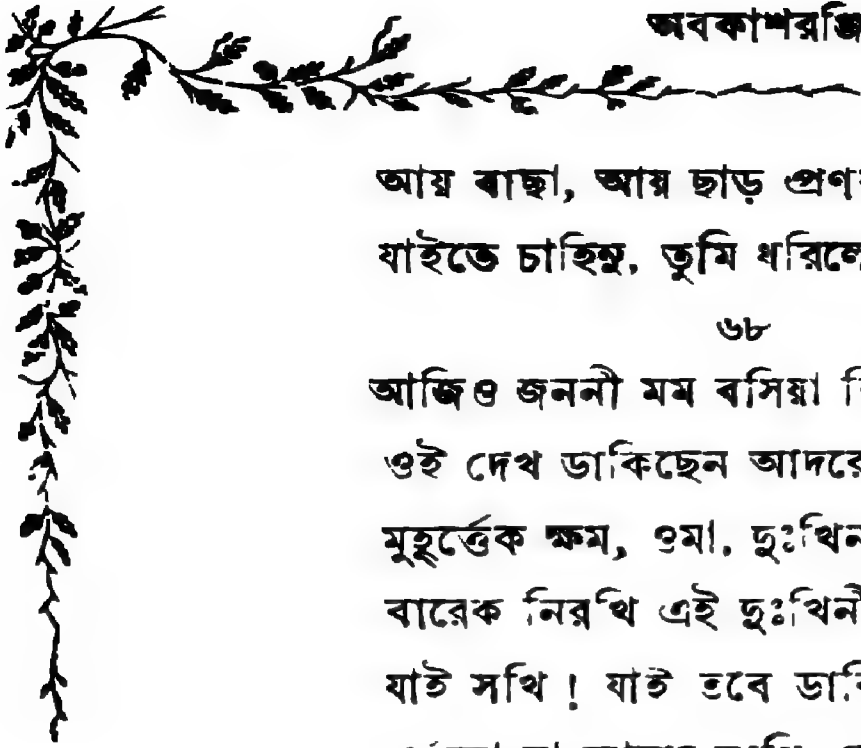 অবকাশরঞ্জি
আয় বাছা, আয় ছাড় প্রণ
যাইতে চাহিনু, তুমি ধরিলে
৬৮
আজিও জননী মম বসিয়া
ওই দেখ ডাকিছেন আদরে
মুহূর্ত্তেক ক্ষম, ওমা, দুঃখিন
বারেক নিরখি এই দুঃখিনী
যাই সখি ! যাই তবে ডাকি